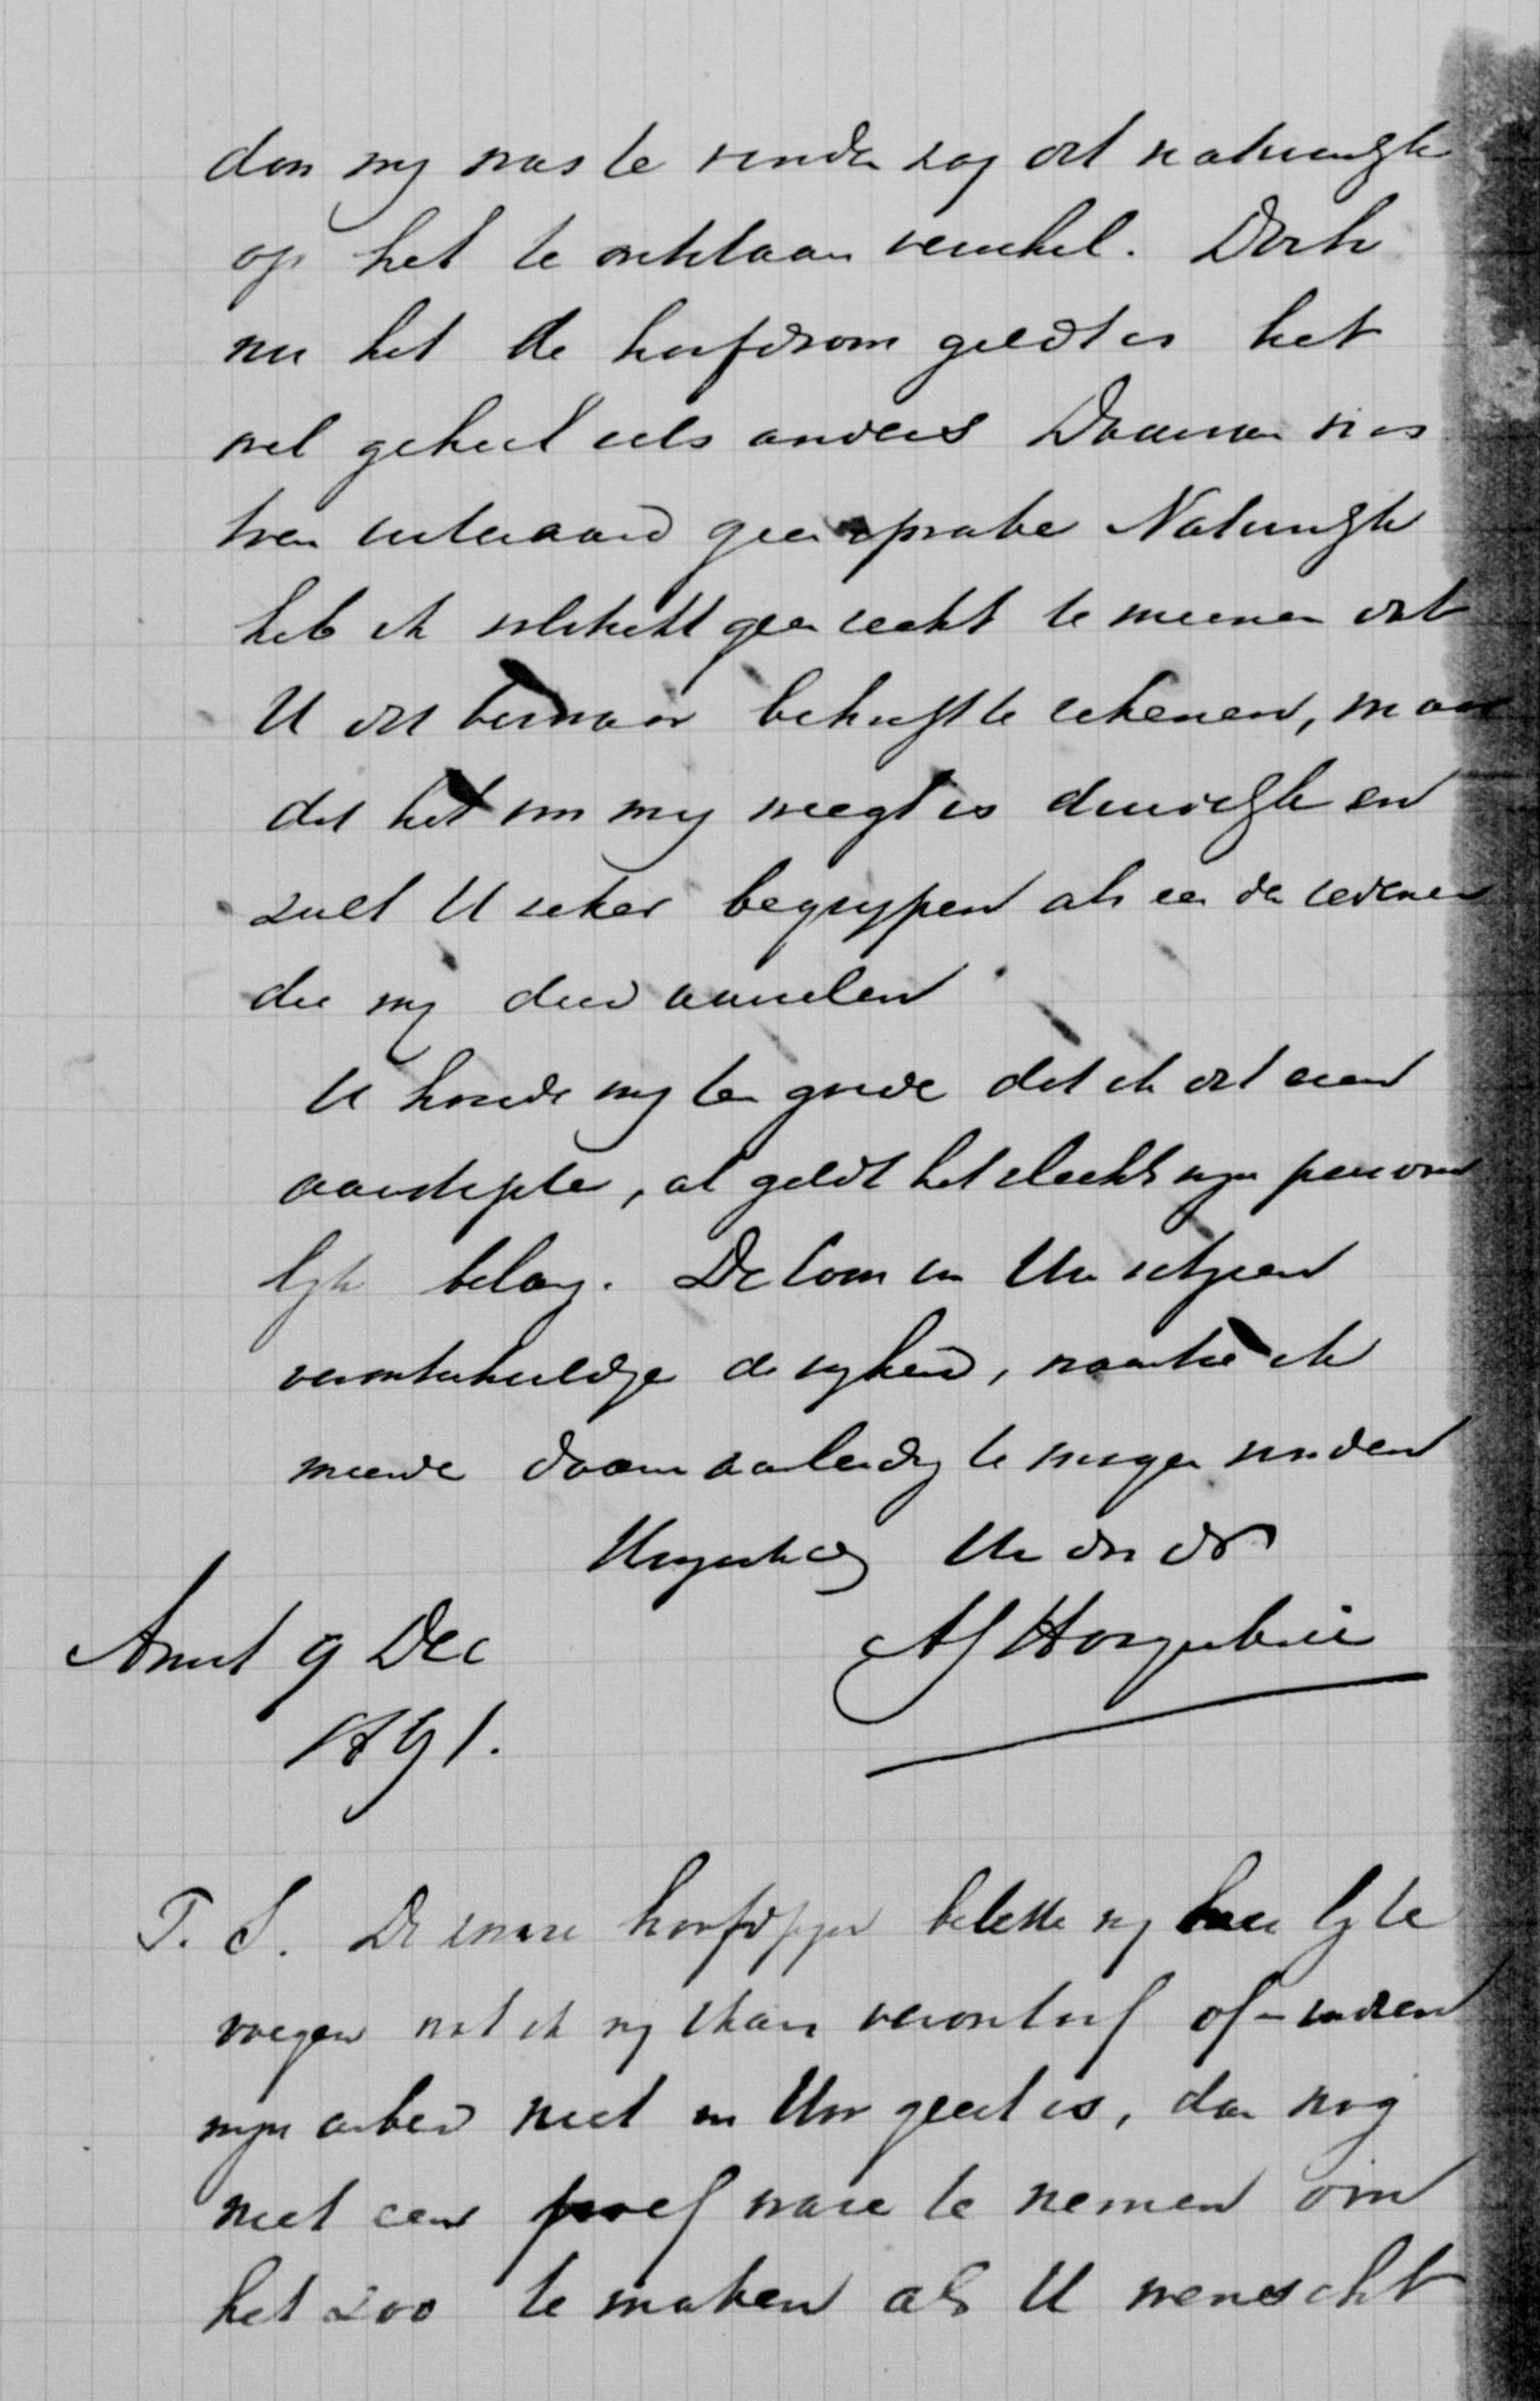 dan mij was te vinden zag dit natuurlijk
op het te ontstaan verschil. Doch
nu het de hoofdsom geldt is het
wel geheel iets anders Daarvan was
toen uiteraard geen sprake Natuurlijk
heb ik volstrekt geen recht te meenen dat
U dit bezwaar behoeft te rekenen, maar
dat het voor mij weegt is duidelijk en
zult U zeker begrijpen als een der redenen
die mij deed aarzelen
U houde mij ten goede dat ik dit even
aanstipte, al geldt het slechts mijn persoon
lijk belang. De toon van Uw schrijven
verontschuldige de vrijheid, waartoe ik
meende daarin aanleiding te mogen vinden
Hoogachtend Uw dw dr
Amst 9 Dec
1891.
P. S. De ware hoofdpijn belette mij te
voegen wat ik mij thans veroorloof of – indien
mijn arbeid niet in Uw geest is, dan nog
niet een proef ware te nemen om
het zoo te maken als U wenscht